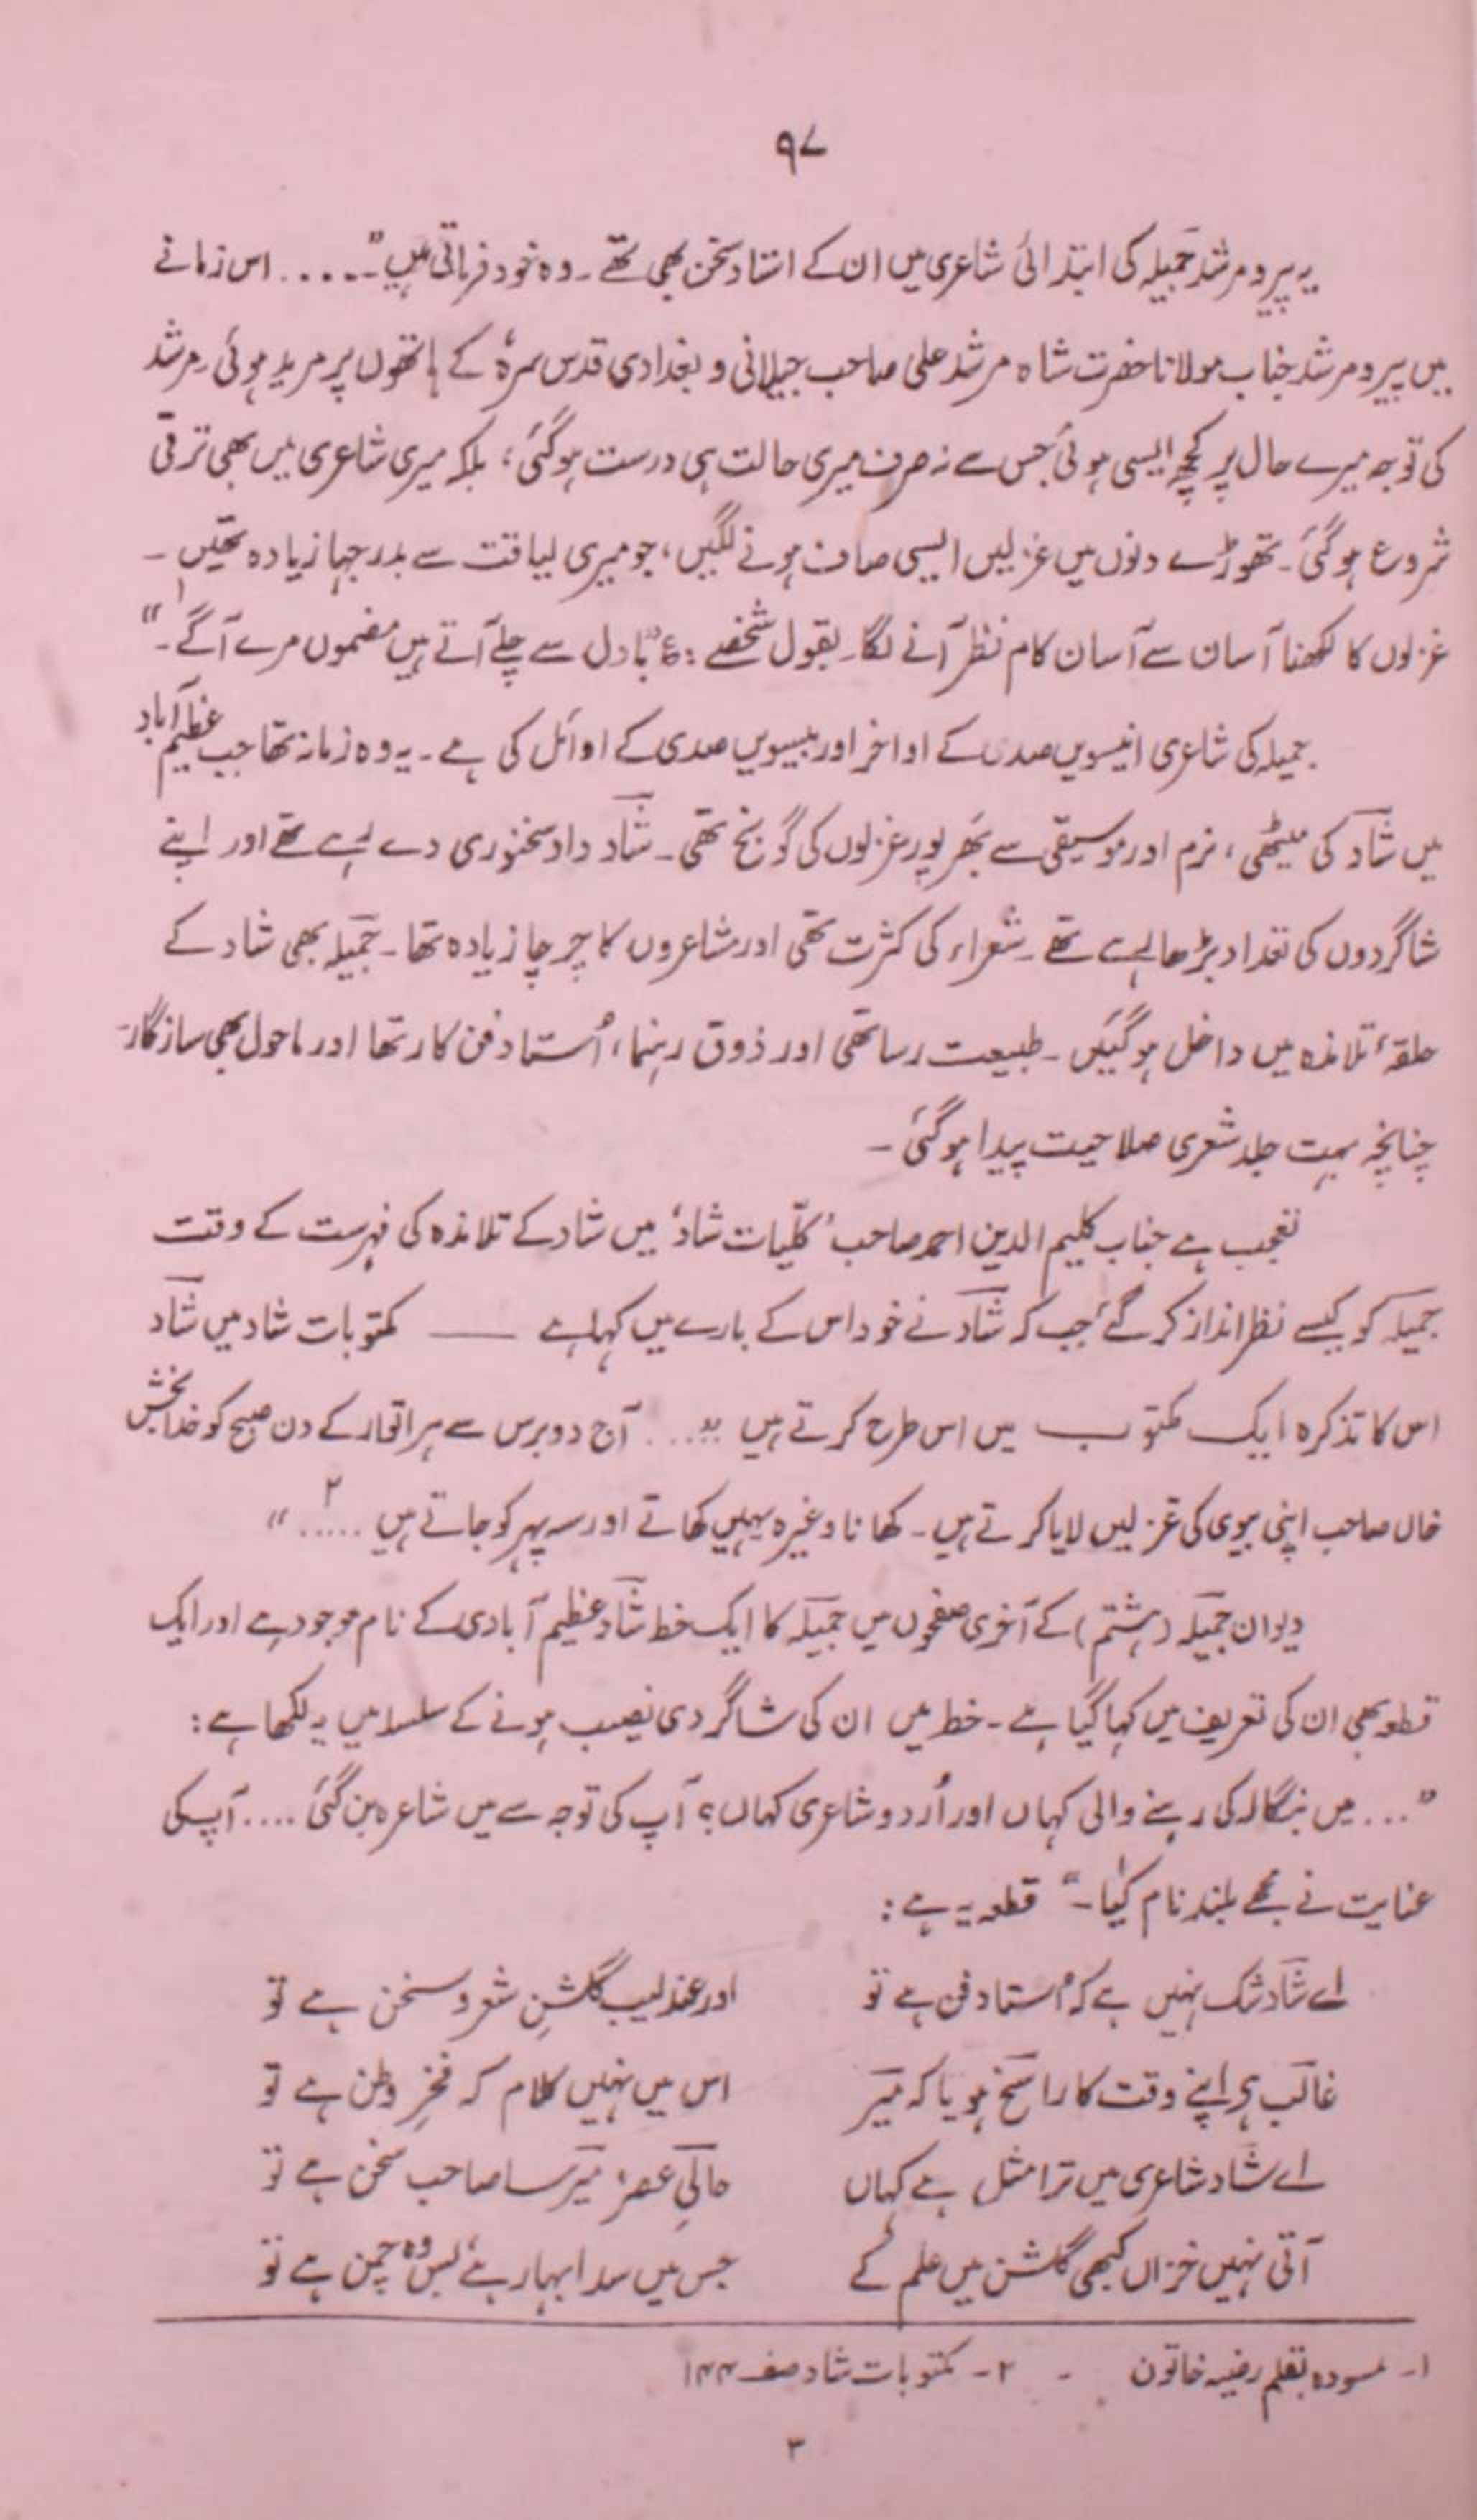 ۹۷
یہ پیر و مرشد جمیلہ کی ابتدائی شاعری میں ان کے استاد سخن بھی تھے ۔ وہ خود فرماتی ہیں ”۔۔۔۔۔ اس زمانے
میں پیر و مرشد جناب مولانا حضرت شاہ مرشد علی صاحب جیلانی و بغدادی قدس سرہٗ کے ہاتھوں پر مرید ہوئی ۔ مرشد
کی توجہ میرے حال پر کچھ ایسی ہوئی جس سے نہ صرف میری حالت ہی درست ہوگئی، بلکہ میری شاعری میں بھی ترقی
شروع ہوگئی ۔ تھوڑے دنوں میں غزلیں ایسی صاف ہونے لگیں، جو میری لیاقت سے بدرجہا زیادہ تھیں ۔
غزلوں کا لکھنا آسان سے آسان کام نظر آنے لگا ۔ بقول شخصے : ع ”بادل سے چلے آتے ہیں مضموں مرے آگے ۔“ ۱
جمیلہ کی شاعری انیسویں صدی کے اواخر اور بیسویں صدی کے اوائل کی ہے ۔ یہ وہ زمانہ تھا جب عظیم آباد
میں شاد کی میٹھی، نرم اور موسیقی سے بھرپور غزلوں کی گونج تھی ۔ شاد داد سخنوری دے رہے تھے اور اپنے
شاگردوں کی تعداد بڑھا رہے تھے ۔ شعراء کی کثرت تھی اور مشاعروں کا چرچا زیادہ تھا ۔ جمیلہ بھی شاد کے
حلقۂ تلامذہ میں داخل ہوگئیں ۔ طبیعت رسا تھی اور ذوق رہنما، اُستاد فن کار تھا اور ماحول بھی سازگار ۔
چنانچہ بہت جلد شعری صلاحیت پیدا ہوگئی ۔
تعجب ہے جناب کلیم الدین احمد صاحب ’کلّیات شاد‘ میں شاد کے تلامذہ کی فہرست کے وقت
جمیلہ کو کیسے نظر انداز کر گئے جب کہ شاد نے خود اس کے بارے میں کہا ہے —— مکتوبات شاد میں شاد
اس کا تذکرہ ایک مکتوب میں اس طرح کرتے ہیں ”.... آج دو برس سے ہر اتوار کے دن صبح کو خدا بخش
خاں صاحب اپنی بیوی کی غزلیں لایا کرتے ہیں ۔ کھانا وغیرہ یہیں کھاتے اور سہ پہر کو جاتے ہیں ..... ۲“
دیوان جمیلہ (ہشتم) کے آخری صفحوں میں جمیلہ کا ایک خط شاد عظیم آبادی کے نام موجود ہے اور ایک
قطعہ بھی ان کی تعریف میں کہا گیا ہے ۔ خط میں ان کی شاگردی نصیب ہونے کے سلسلہ میں یہ لکھا ہے :
”... میں بنگالہ کی رہنے والی کہاں اور اُردو شاعری کہاں؟ آپ کی توجہ سے میں شاعرہ بن گئی .... آپ کی
عنایت نے مجھے بلند نام کیا ۔“ ۱ قطعہ یہ ہے :
اے شاد شک نہیں ہے کہ اُستاد فن ہے تو اور عندلیب گلشنِ شعر و سخن ہے تو
غالب ہی اپنے وقت کا راسخ ہو یا کہ میر اس میں نہیں کلام کہ فخرِ وطن ہے تو
اے شاد شاعری میں ترا مثل ہے کہاں حالیِ عصر، میر سا صاحب سخن ہے تو
آتی نہیں خزاں کبھی گلشن میں علم کے جس میں سدا بہار ہے بس وہ چمن ہے تو
۱۔ مسودہ بقلم رضیہ خاتون ۔ ۲۔ مکتوبات شاد صفحہ ۱۴۴
۳